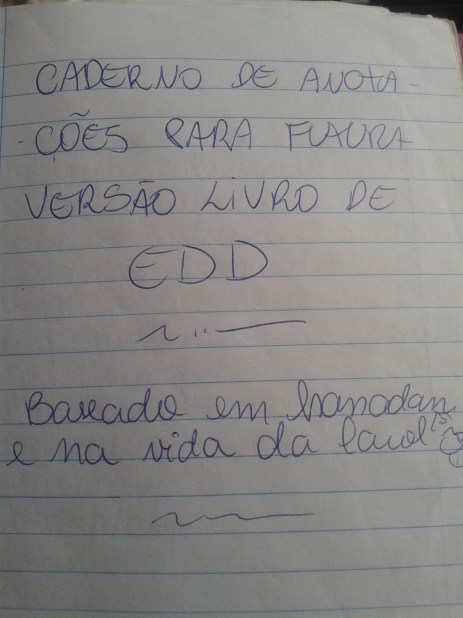 CADERNO DE ANOTA-
-ÇÕES PARA FUTURA
VERSÃO LIVRO DE
EDD
Baseado em
e na vida da Carol